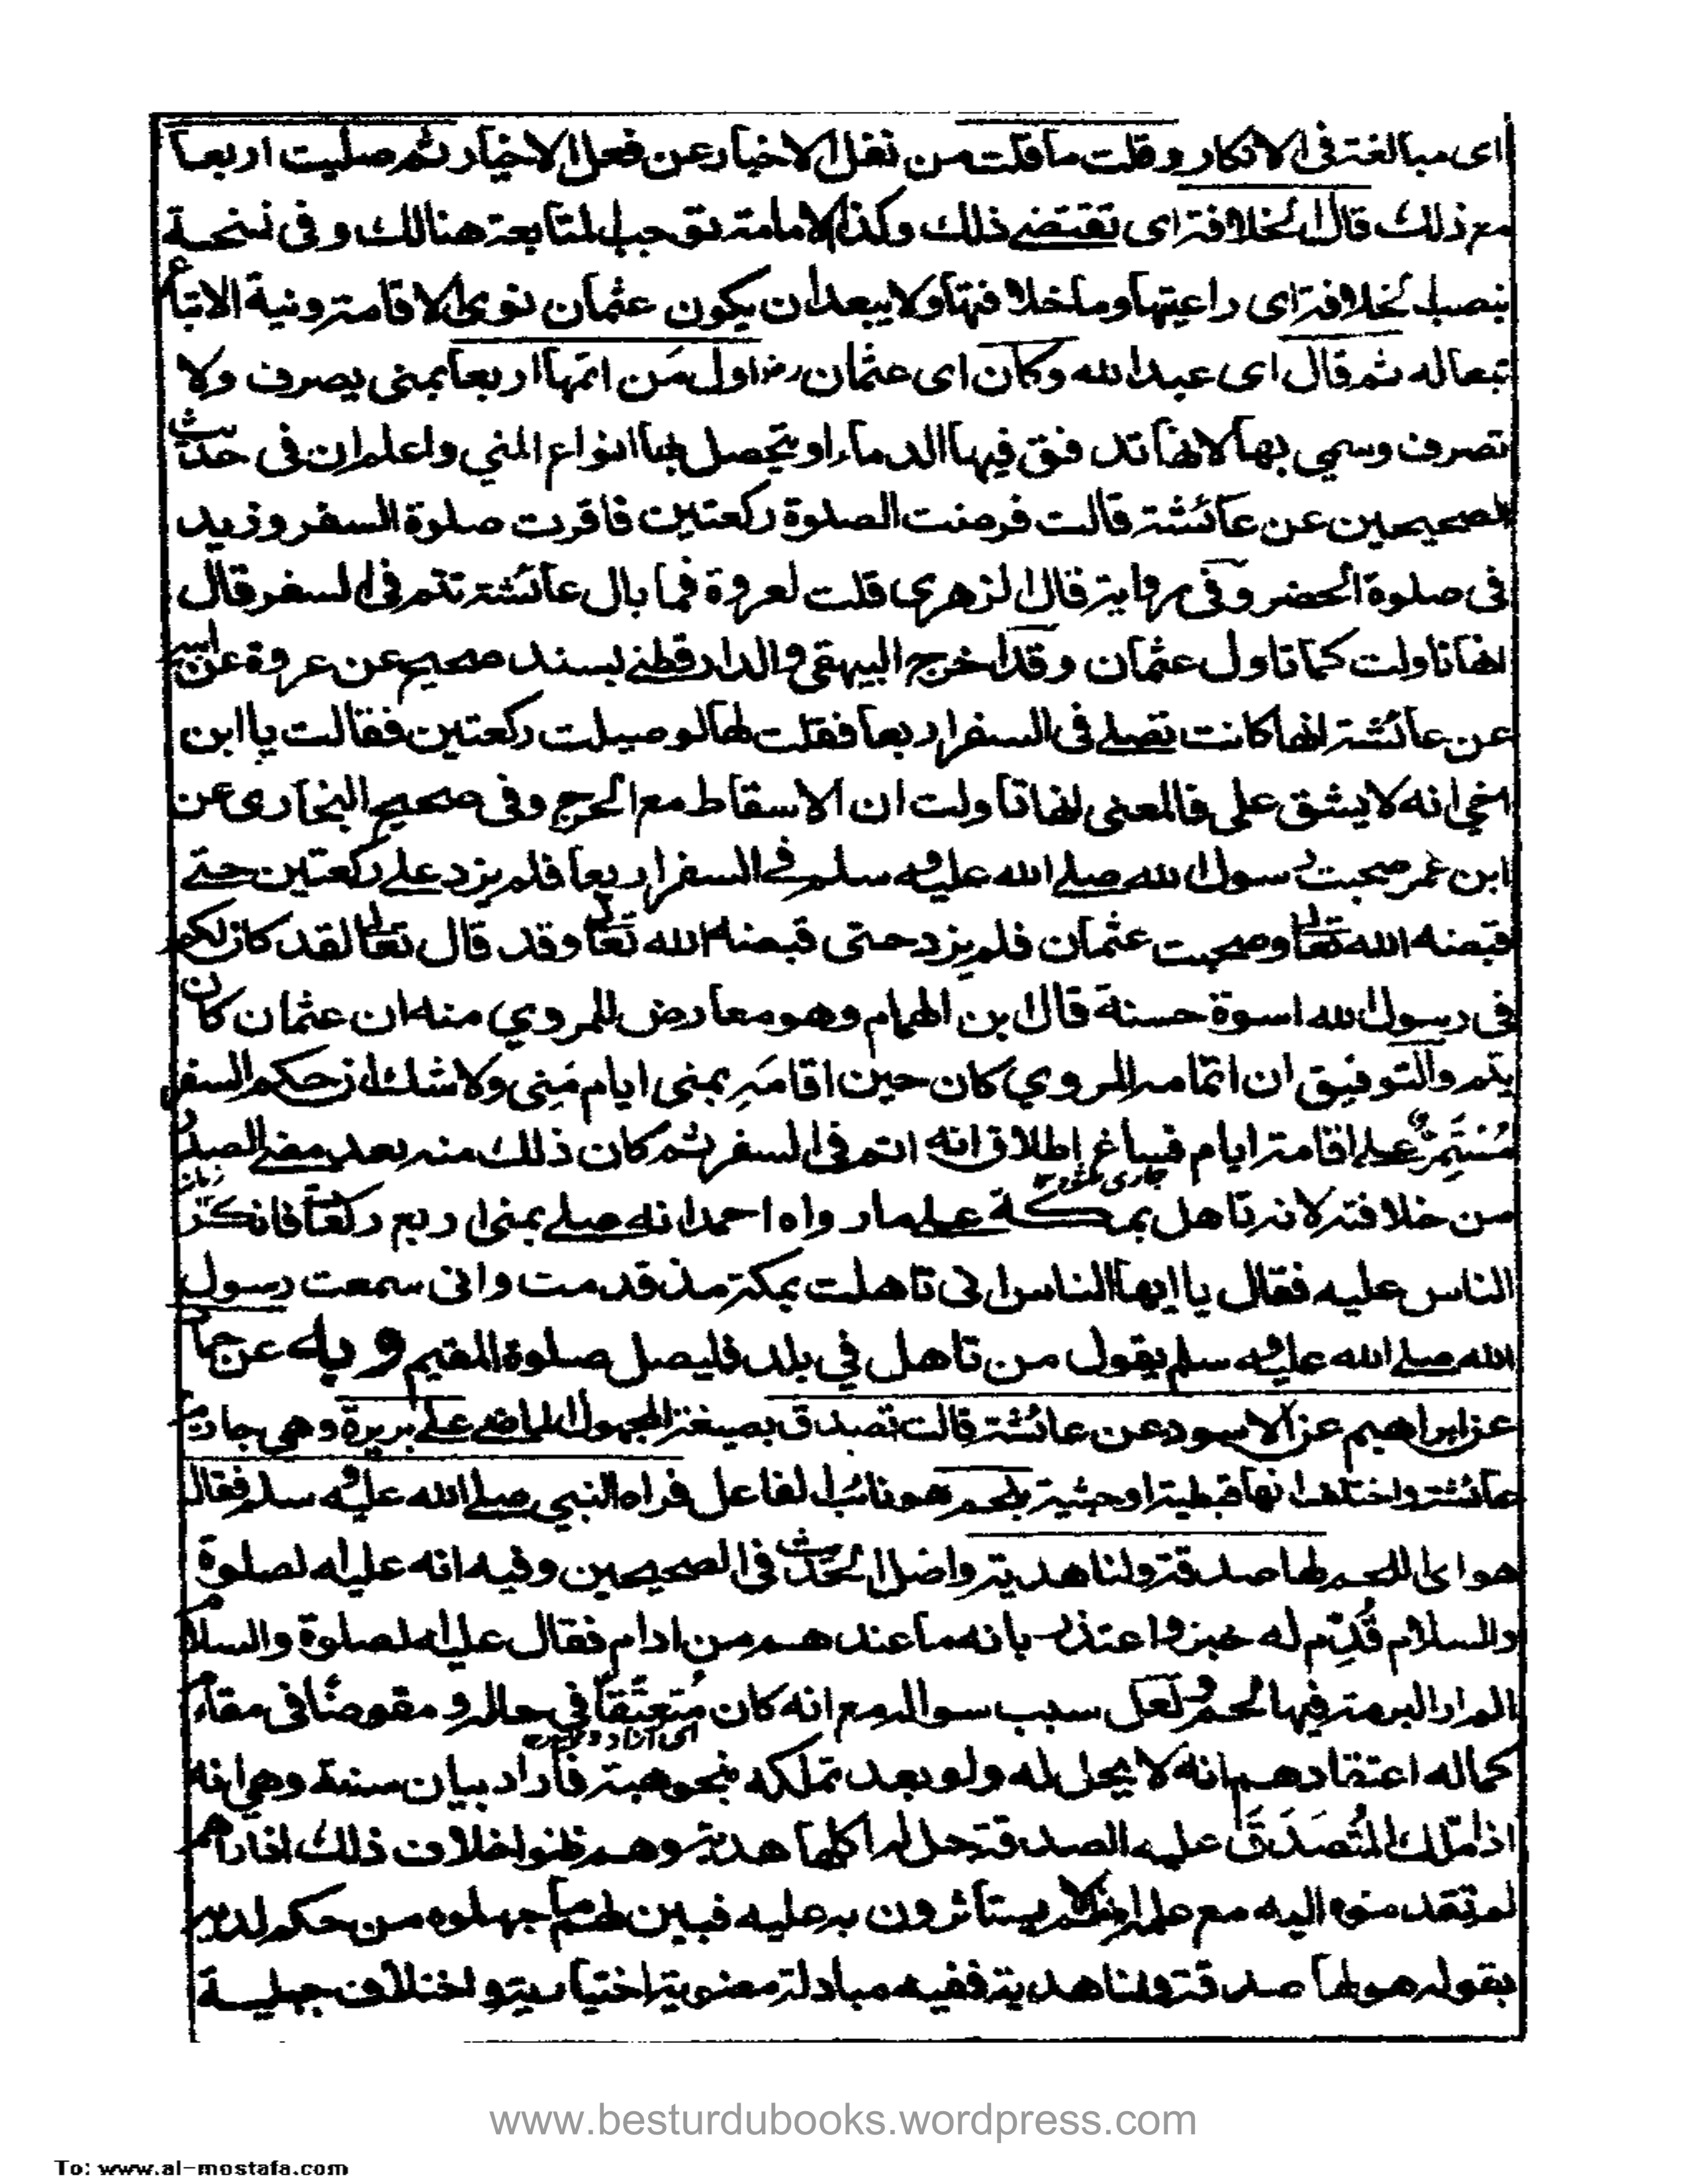 اى مبالغة فى الانكار وقلت ما قلت من نقل الاخبار عن فعل الاخيار ثم صليت اربعا
مع ذلك قال الخلافة اى تقتضے ذلك وكذا الامامة توجب المتابعة هنالك وفى نسخة
بنصب الخلافة اى راعيتها وما خلافتها ولا يبعد ان يكون عثمان نوى الاقامة ونية الاتباع
تبعا له ثم قال اى عبدا لله وكان اى عثمان رض اول مَن اتمها اربعا بمنى يصرف ولا
تصرف وسمي بها لانها تدفق فيها الدماء او يتحصل بها انواع المني واعلم ان فى حديث
الصحيحين عن عائشة قالت فرضت الصلوة ركعتين فاقرت صلوة السفر وزيد
فى صلوة الحضر وفى رواية قال الزهرى قلت لعروة فما بال عائشة تتم فى السفر قال
انها تاولت كما تاول عثمان وقد اخرج البيهقى والدارقطنے بسند صحيح عن عروة عن
عن عائشة انها كانت تصلے فى السفر اربعا فقلت لها لو صليت ركعتين فقالت يا ابن
اخي انه لا يشق على فالمعنى انها تاولت ان الاسقاط مع الحرج وفى صحيح البخارى عن
ابن عمر صحبت رسول الله صلے الله عليه وسلم فے السفر اربعا فلم يزد علے ركعتين حتے
قبضه الله تعالى وصحبت عثمان فلم يزد حتى قبضه الله تعالى وقد قال تعالى لقد كان لكم
فى رسول الله اسوة حسنة قال ابن الهمام وهو معارض للمروي منه ان عثمان كان
يتم والتوفيق ان اتمامه المروي كان حين اقامَه بمنى ايام مَنِى ولا شك ان حكم السفر
مُنسَحِبٌ علے اقامة ايام فيباغ اطلاق انه اتم فى السفر ثم كان ذلك منه بعد مضے الصدر
من خلافته لانه تاهل بمكة علے ما رواه احمد انه صلے بمنى اربع ركعات فانكر
الناس عليه فقال يا ايها الناس انى تاهلت بمكة مذ قدمت وانى سمعت رسول
الله صلے الله عليه وسلم يقول من تاهل في بلد فليصل صلوة المقيم و به عن حماد
عن ابراهيم عن الاسود عن عائشة قالت تصدق بصيغة المجهول الماضے علے بريرة وهى جارية
عائشة واختلف انها قبطية او حبشية بلحم هو نائب الفاعل فراه النبي صلے الله عليه وسلم فقال
هو اى اللحم لها صدقة ولنا هدية واصل الحديث فى الصحيحين وفيه انه عليه الصلوة
والسلام قُدِّم له خبز واعتذر بانه ما عندهم من ادام فقال عليه الصلوة والسلام
الم ار البرمة فيها لحم ولعل سبب سواله مع انه كان مُتعفّفا في حاله ومفوضا فى مقام
كماله اعتقادهم انه لا يحل له ولو بعد تملكه بنحو هبة فاراد بيان سنة وهى انه
اذا ملك المُتصَدَقَ عليه الصدقة حل له اكلها هدية وهم ظنوا خلاف ذلك اذ اراهم
لم تقدموه اليه مع علمه انهم لا يستأثرون به عليه فبين لهم ما جهلوه من حكم لديه
بقوله هو لها صدقة ولنا هدية ففيه مبادلة معنوية اختيارية واختلاف جهلية
www.besturdubooks.wordpress.com
To: www.al-mostafa.com